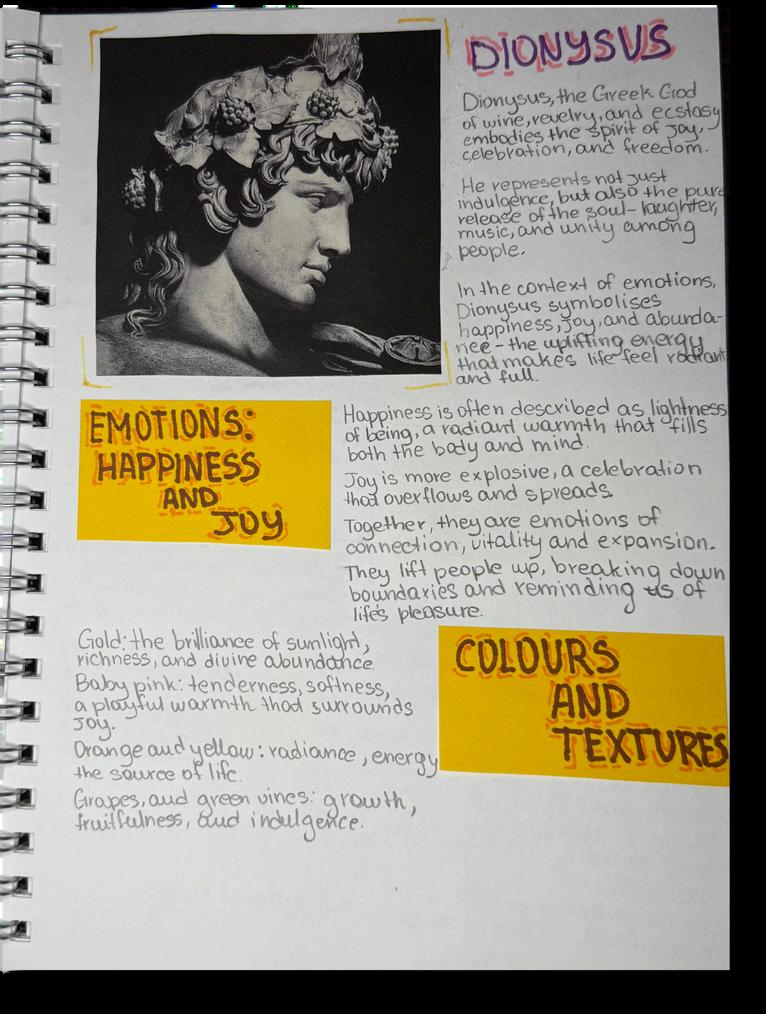 DIONYSUS
Dionysus, the Greek God
of wine, revelry, and ecstasy
embodies the spirit of joy,
celebration, and freedom.
He represents not just
indulgence, but also the pure
release of the soul - laughter,
music, and unity among
people.
In the context of emotions,
Dionysus symbolises
happiness, joy, and abunda-
nce - the uplifting energy
that makes life feel radiant
and full.
EMOTIONS:
HAPPINESS
AND
JOY
Happiness is often described as lightness
of being, a radiant warmth that fills
both the body and mind.
Joy is more explosive, a celebration
that overflows and spreads.
Together, they are emotions of
connection, vitality and expansion.
They lift people up, breaking down
boundaries and reminding us of
life's pleasure.
Gold: the brilliance of sunlight,
richness, and divine abundance
Baby pink: tenderness, softness,
a playful warmth that surrounds
joy.
Orange and yellow: radiance, energy
the source of life.
Grapes, and green vines: growth,
fruitfulness, and indulgence.
COLOURS
AND
TEXTURES